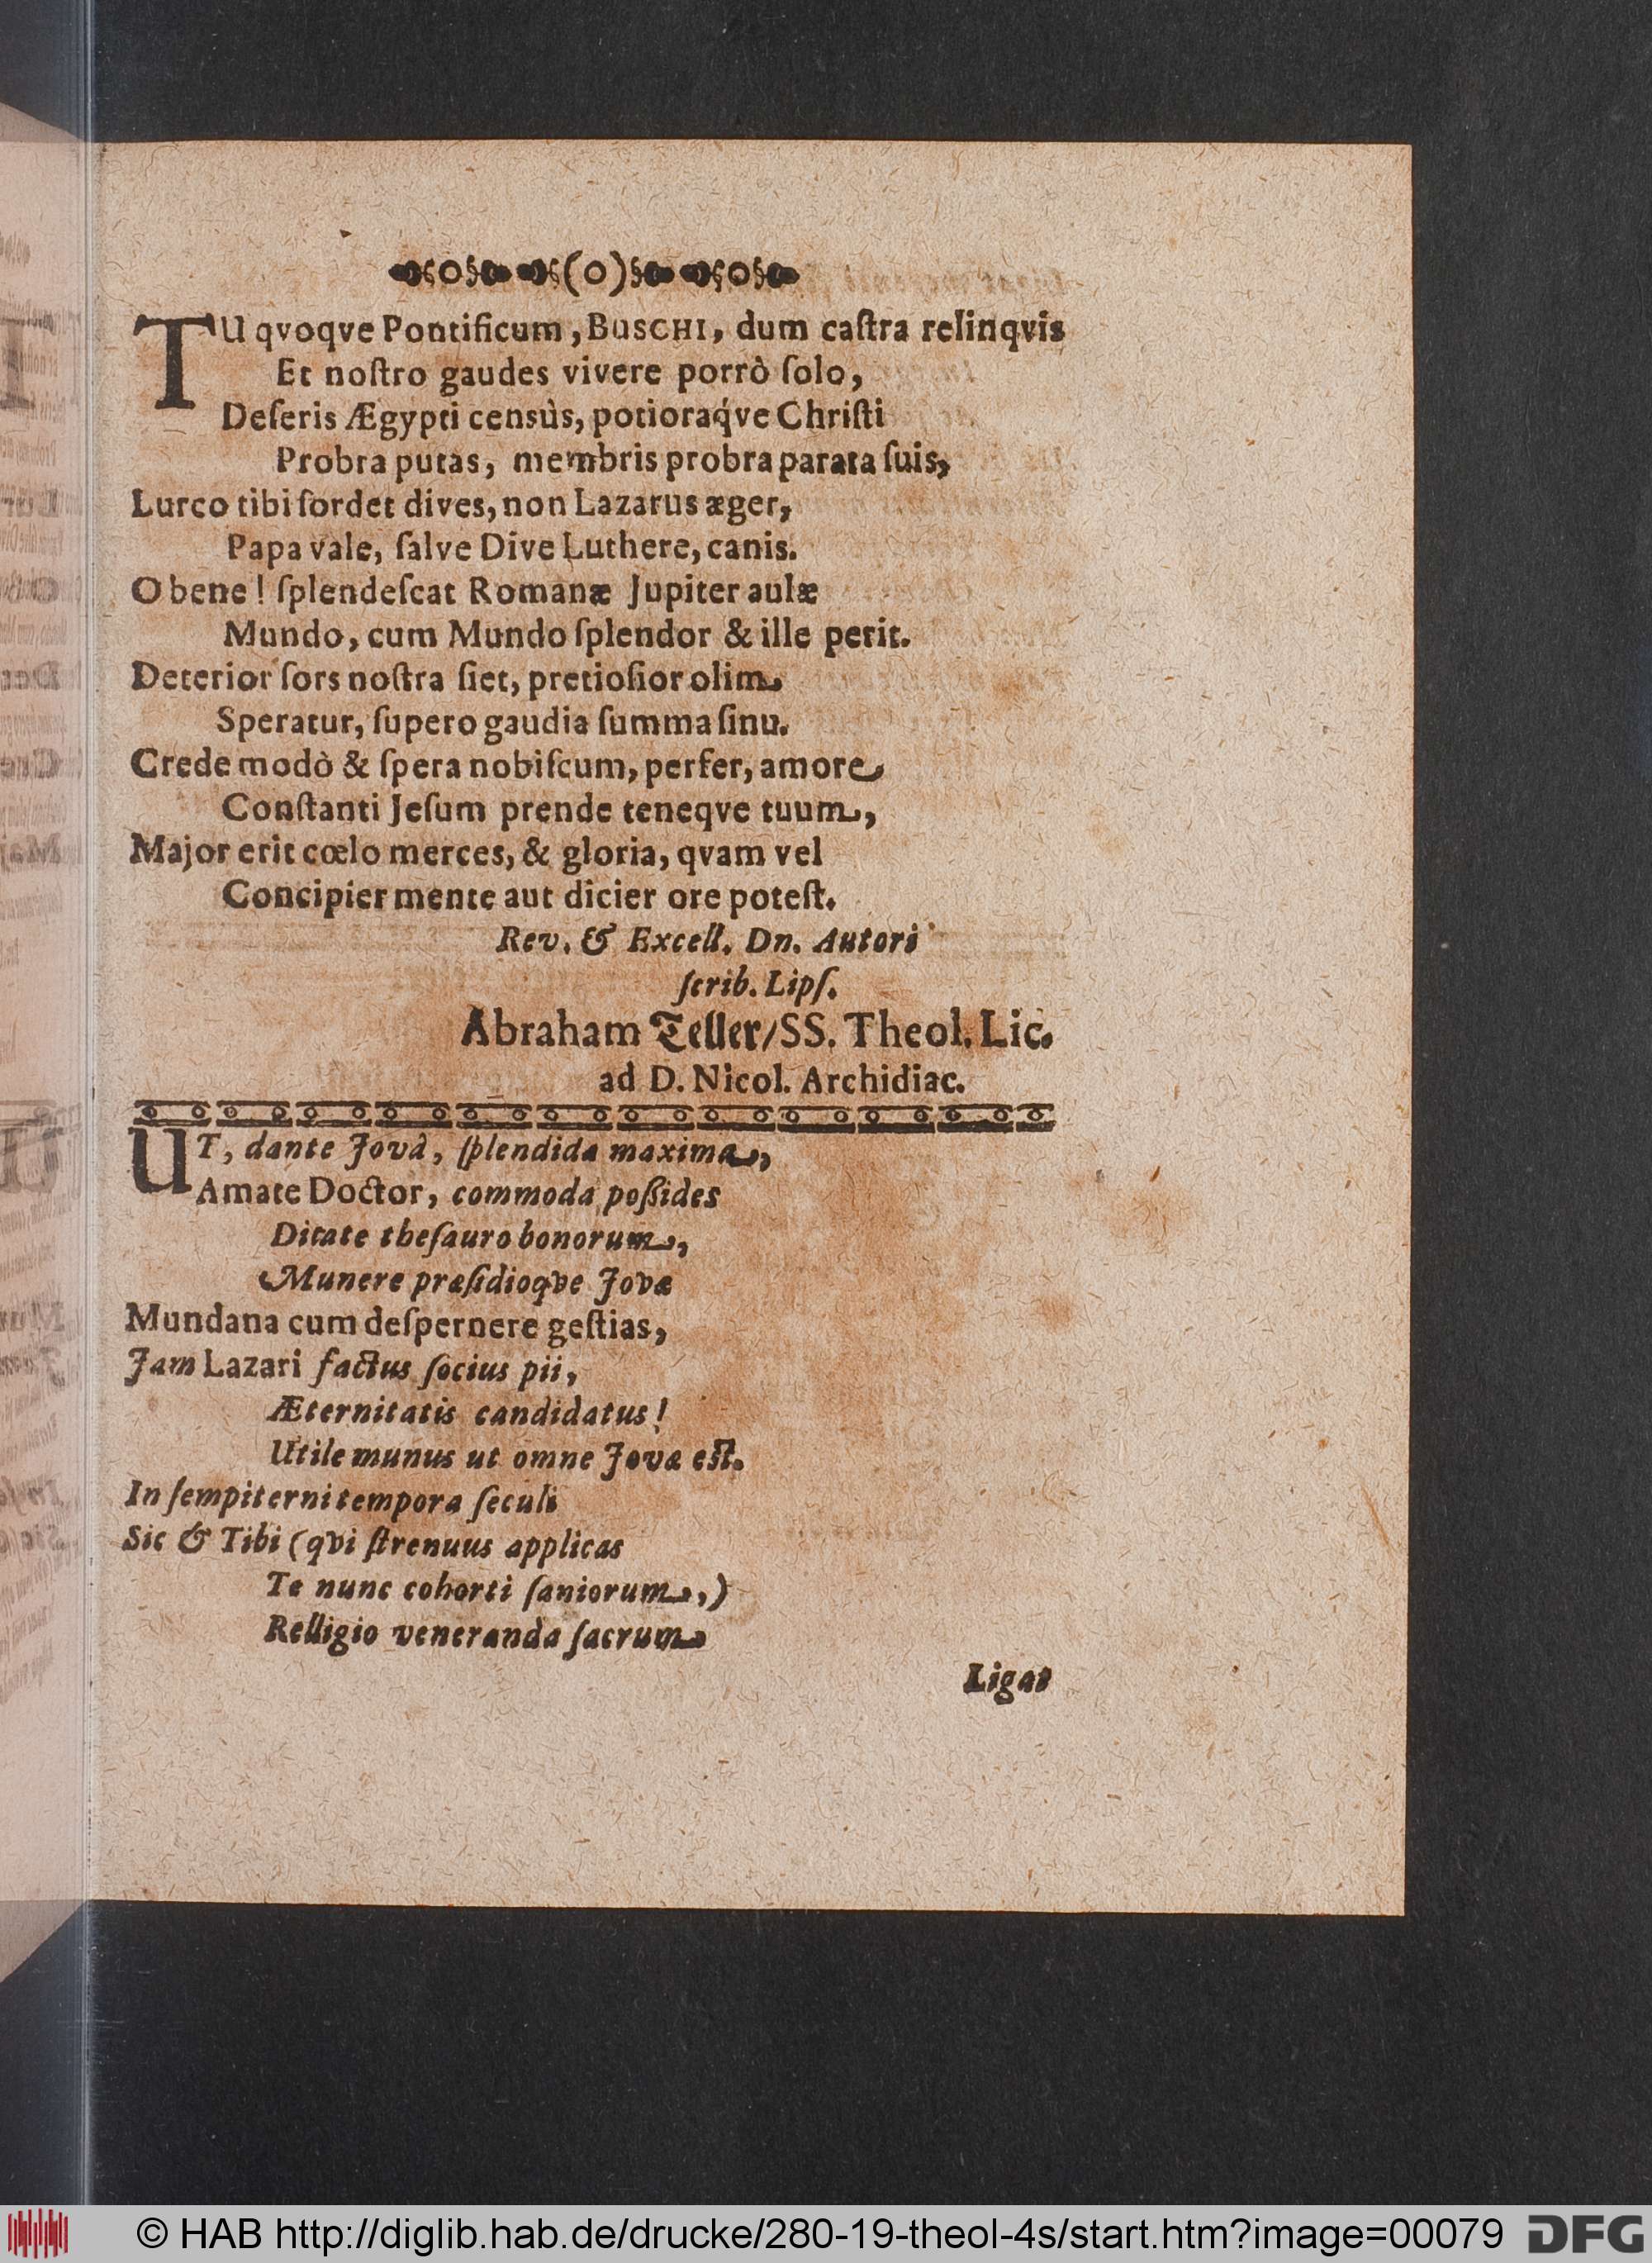 (O)
TU qvoqve Pontificum, BUSCHI, dum caſtra relinqvis
Et noſtro gaudes vivere porrò ſolo,
Deſeris Ægypti censùs, potioraq́ve Chriſti
Probra putas, membris probra parata ſuis,
Lurco tibi ſordet dives, non Lazarus æger,
Papa vale, ſalve Dive Luthere, canis.
O bene! ſplendeſcat Romanæ Jupiter aulæ
Mundo, cum Mundo ſplendor & ille perit.
Deterior ſors noſtra ſiet, pretioſior olim
Speratur, ſupero gaudia ſumma ſinu.
Crede modò & ſpera nobiſcum, perfer, amore
Conſtanti Jeſum prende teneqve tuum,
Major erit cœlo merces, & gloria, qvam vel
Concipier mente aut dicier ore poteſt.
Rev. & Excell. Dn. Autori
ſcrib. Lipſ.
Abraham Teller/SS. Theol. Lic.
ad D. Nicol. Archidiac.
UT, dante Jovâ, ſplendida maxima,
Amate Doctor, commoda poßides
Ditate theſauro bonorum,
Munere præſidioqve Jovæ
Mundana cum deſpernere geſtias,
Jam Lazari factus ſocius pii,
Æternitatis candidatus!
Utile munus ut omne Jovæ eſt.
In ſempiterni tempora ſeculi
Sic & Tibi (qvi ſtrenuus applicas
Te nunc cohorti ſaniorum,)
Relligio veneranda ſacrum
Ligat
© HAB http://diglib.hab.de/drucke/280-19-theol-4s/start.htm?image=00079
DFG